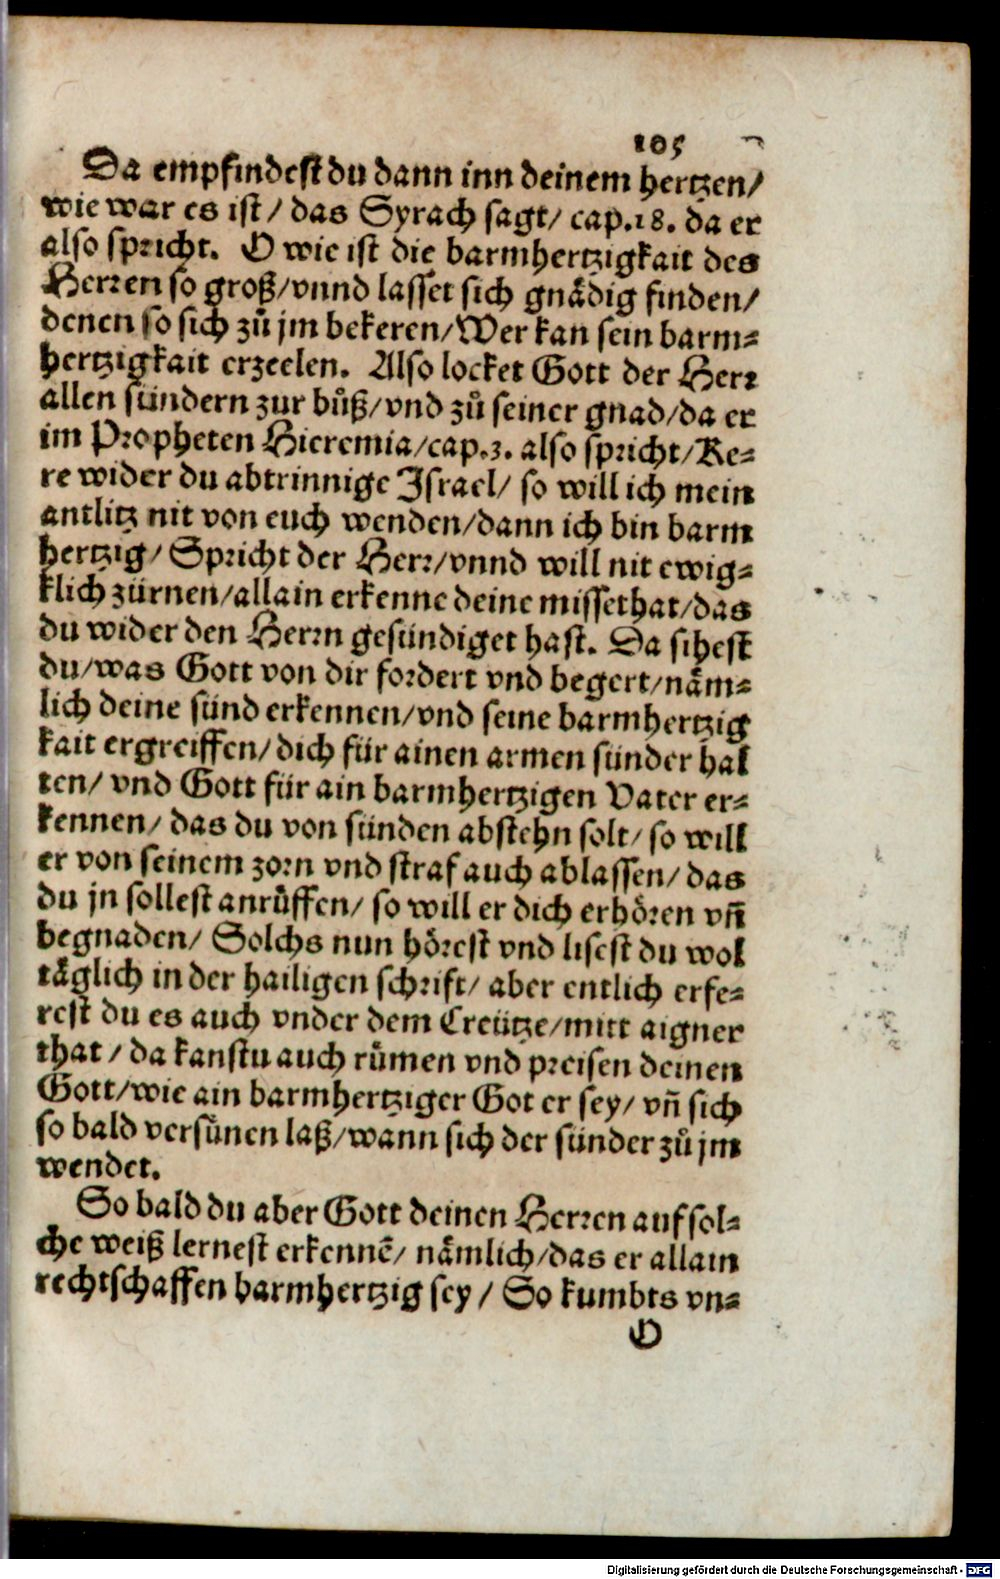 105
Da empfindest du dann inn deinem hertzen/
wie war es ist/ das Syrach sagt/ cap.18. da er
also spricht. O wie ist die barmhertzigkait des
Herren so groß/vnnd lasset sich gnädig finden/
denen so sich zů jm bekeren/Wer kan sein barm-
hertzigkait erzeelen. Also locket Gott der Herr
allen sündern zur bůß/vnd zů seiner gnad/da er
im Propheten Hieremia/cap.3. also spricht/Ke-
re wider du abtrinnige Israel/ so will ich mein
antlitz nit von euch wenden/dann ich bin barm
hertzig/ Spricht der Herr/vnnd will nit ewig-
klich zürnen/allain erkenne deine missethat/das
du wider den Herrn gesündiget hast. Da sihest
du/was Gott von dir fordert vnd begert/näm-
lich deine sünd erkennen/vnd seine barmhertzig
kait ergreiffen/dich für ainen armen sünder hal
ten/ vnd Gott für ain barmhertzigen Vater er-
kennen/ das du von sünden abstehn solt/ so will
er von seinem zorn vnd straf auch ablassen/ das
du jn sollest anrüffen/ so will er dich erhören vñ
begnaden/ Solchs nun hörest vnd lisest du wol
täglich in der hailigen schrift/ aber entlich erfe-
rest du es auch vnder dem Creütze/mitt aigner
that/ da kanstu auch rümen vnd preisen deinen
Gott/wie ain barmhertziger Got er sey/ vñ sich
so bald versünen laß/wann sich der sünder zů jm
wendet.
So bald du aber Gott deinen Herren auf sol-
che weiß lernest erkennē/ nämlich/das er allain
rechtschaffen barmhertzig sey/ So kumbts vn-
O
Digitalisierung gefördert durch die Deutsche Forschungsgemeinschaft - DFG